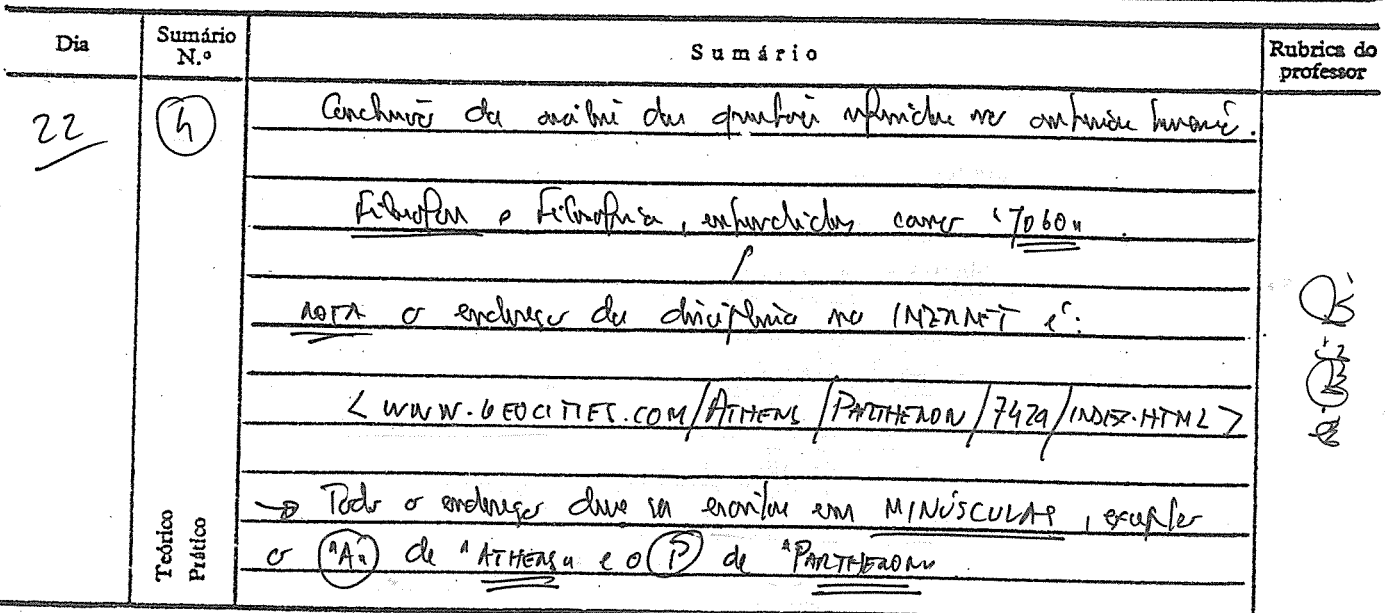 Dia Sumário N.º Sumário Rubrica do professor
22 4 Conclusão da análise das questões referidas no sumário
Filosofar e Filosofia, entendidos como "TODO".
NOTA o endereço da disciplina na INTERNET é:
< WWW.GEOCITIES.COM/ATHENS/PARTHENON/7429/INDEX.HTML >
→ Todo o endereço deve ser escrito em MINÚSCULAS, excepto
o "A" de "ATHENS" e o P de "PARTHENON"
Teórico
Prático